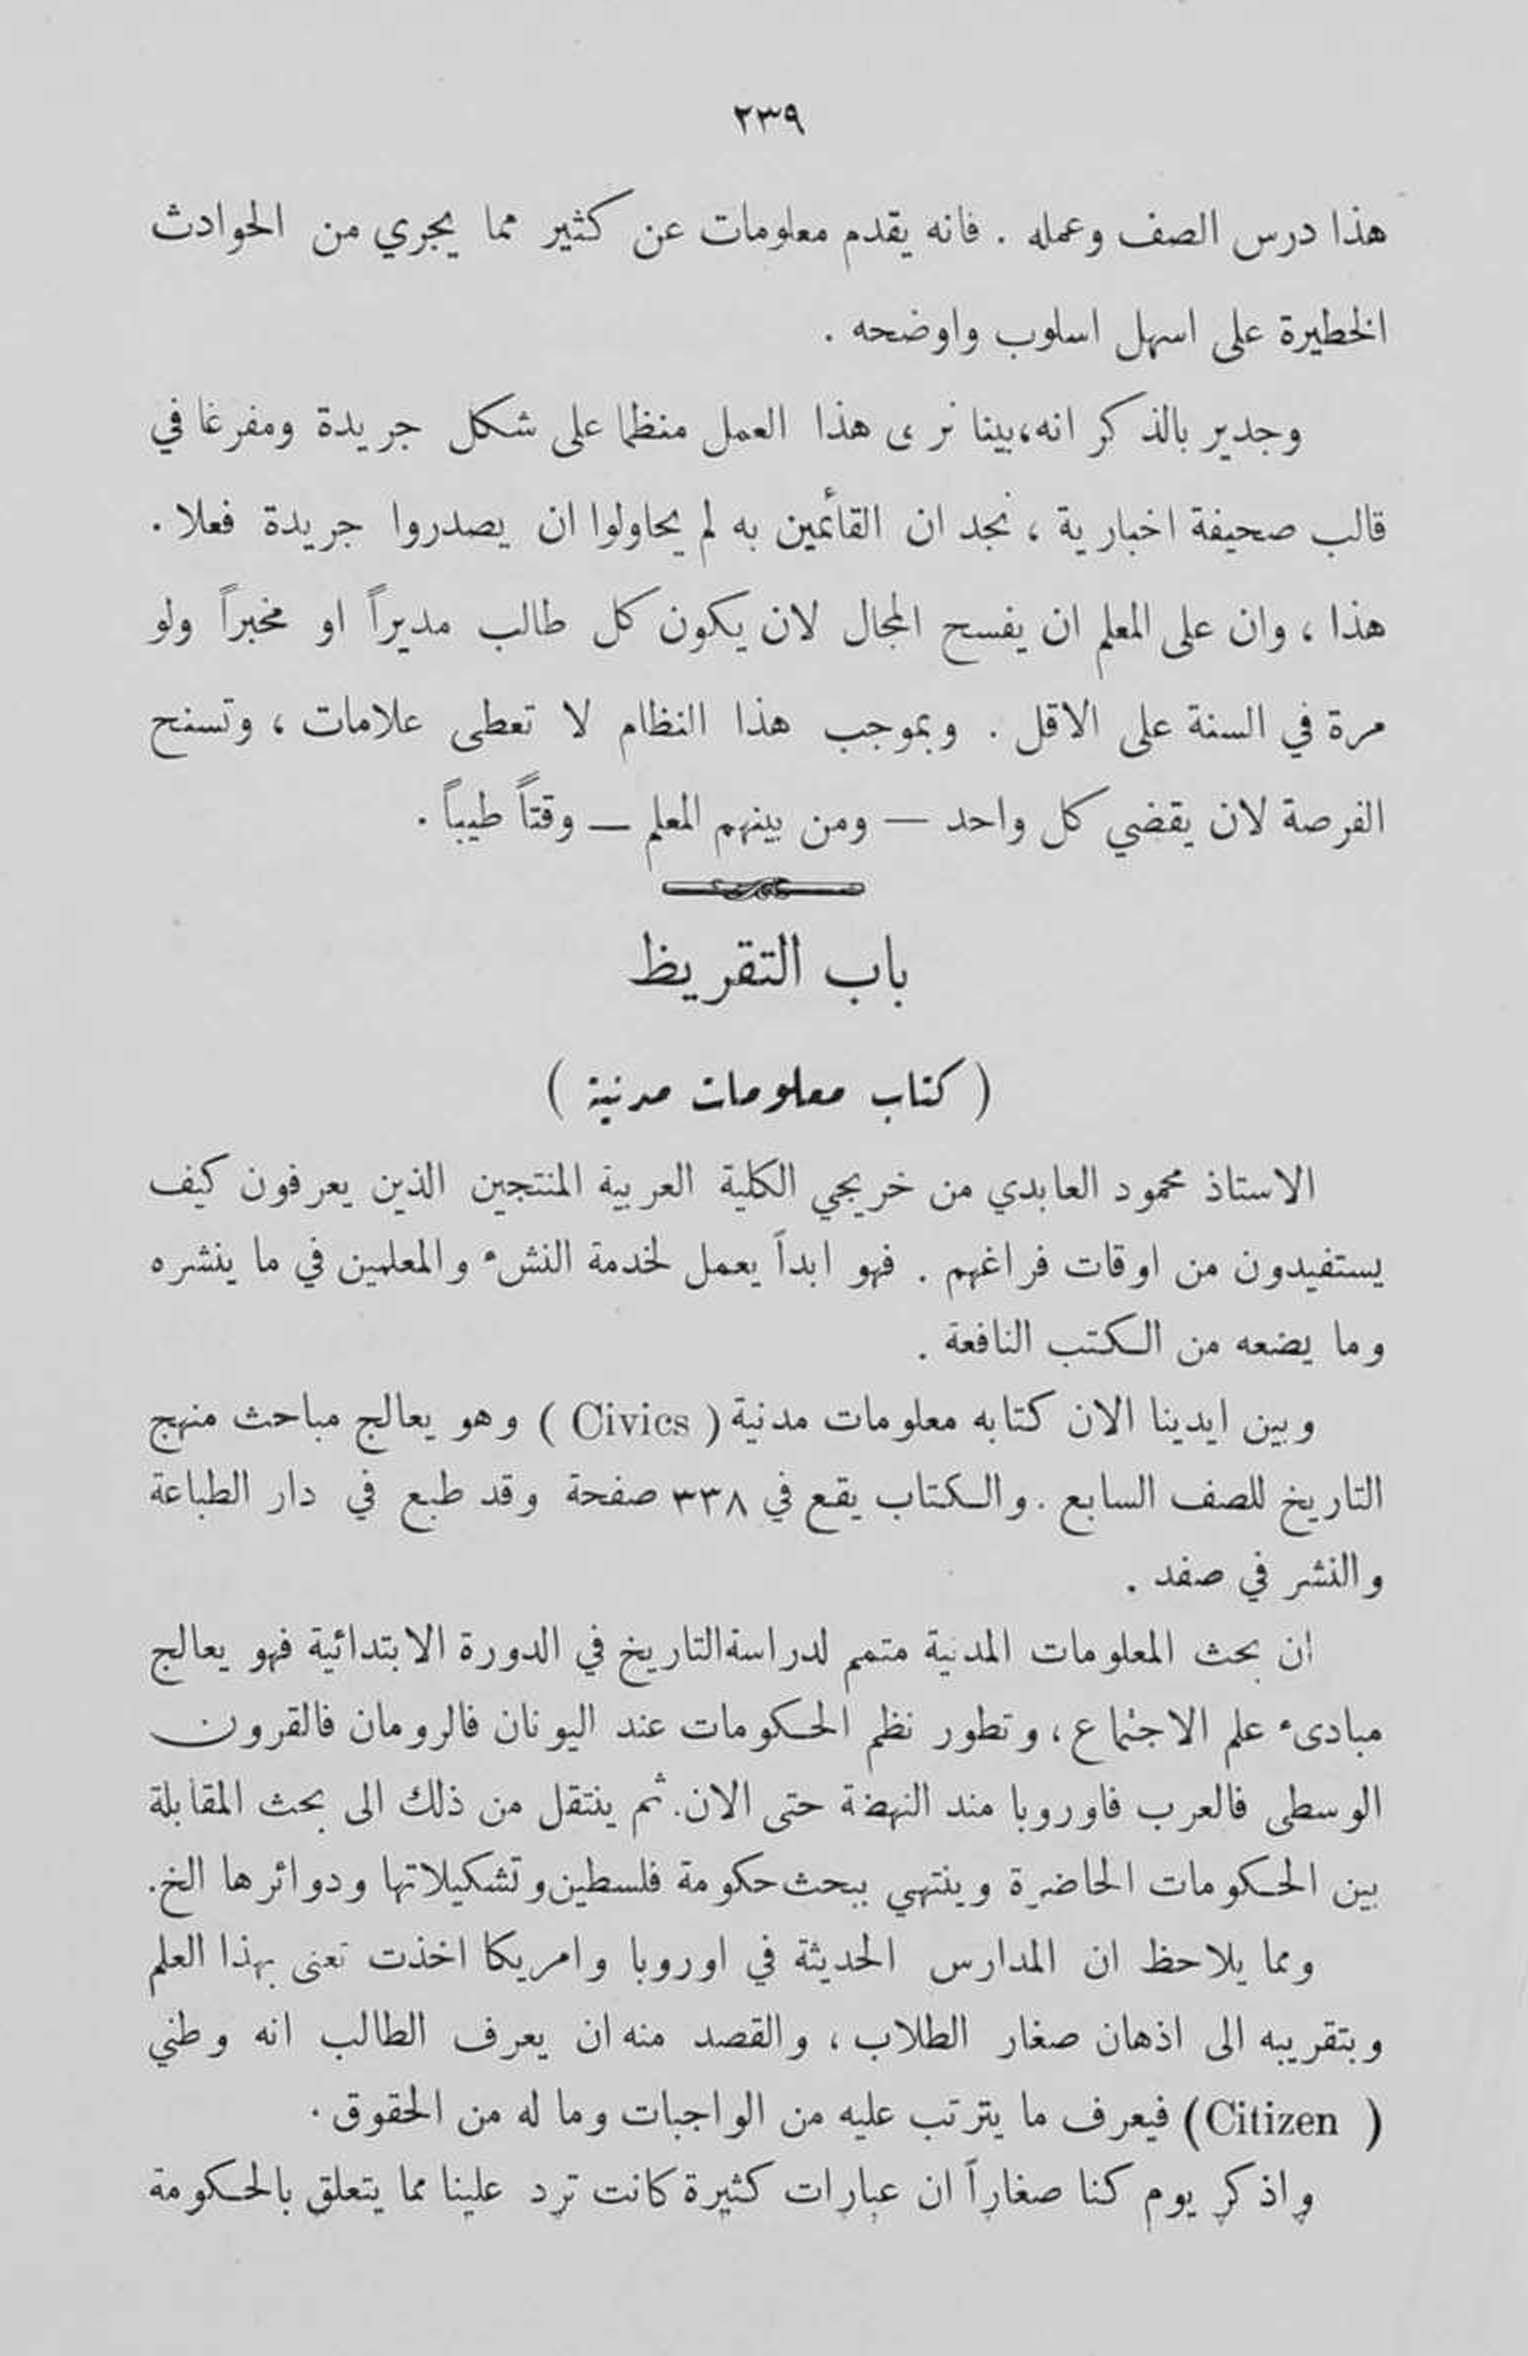 ٢٣٩
هذا درس الصف وعمله . فانه يقدم معلومات عن كثير مما يجري من الحوادث
الخطيرة على اسهل اسلوب واوضحه .
وجدير بالذكر انه، بينا نرى هذا العمل منظما على شكل جريدة ومفرغا في
قالب صحيفة اخبارية ، نجد ان القائمين به لم يحاولوا ان يصدروا جريدة فعلا .
هذا ، وان على المعلم ان يفسح المجال لان يكون كل طالب مديراً او مخبراً ولو
مرة في السنة على الاقل . وبموجب هذا النظام لا تعطى علامات ، وتسنح
الفرصة لان يقضي كل واحد — ومن بينهم المعلم — وقتاً طيباً .
باب التقريظ
( كتاب معلومات مدنية )
الاستاذ محمود العابدي من خريجي الكلية العربية المنتجين الذين يعرفون كيف
يستفيدون من اوقات فراغهم . فهو ابداً يعمل لخدمة النشء والمعلمين في ما ينشره
وما يضعه من الكتب النافعة .
وبين ايدينا الان كتابه معلومات مدنية ( Civics ) وهو يعالج مباحث منهج
التاريخ للصف السابع . والكتاب يقع في ٣٣٨ صفحة وقد طبع في دار الطباعة
والنشر في صفد .
ان بحث المعلومات المدنية متمم لدراسة التاريخ في الدورة الابتدائية فهو يعالج
مبادىء علم الاجتماع ، وتطور نظم الحكومات عند اليونان فالرومان فالقرون
الوسطى فالعرب فاوروبا مند النهضة حتى الان. ثم ينتقل من ذلك الى بحث المقابلة
بين الحكومات الحاضرة وينتهي ببحث حكومة فلسطين وتشكيلاتها ودوائرها الخ.
ومما يلاحظ ان المدارس الحديثة في اوروبا وامريكا اخذت تعنى بهذا العلم
وبتقريبه الى اذهان صغار الطلاب ، والقصد منه ان يعرف الطالب انه وطني
( Citizen ) فيعرف ما يترتب عليه من الواجبات وما له من الحقوق .
واذكر يوم كنا صغاراً ان عبارات كثيرة كانت ترد علينا مما يتعلق بالحكومة